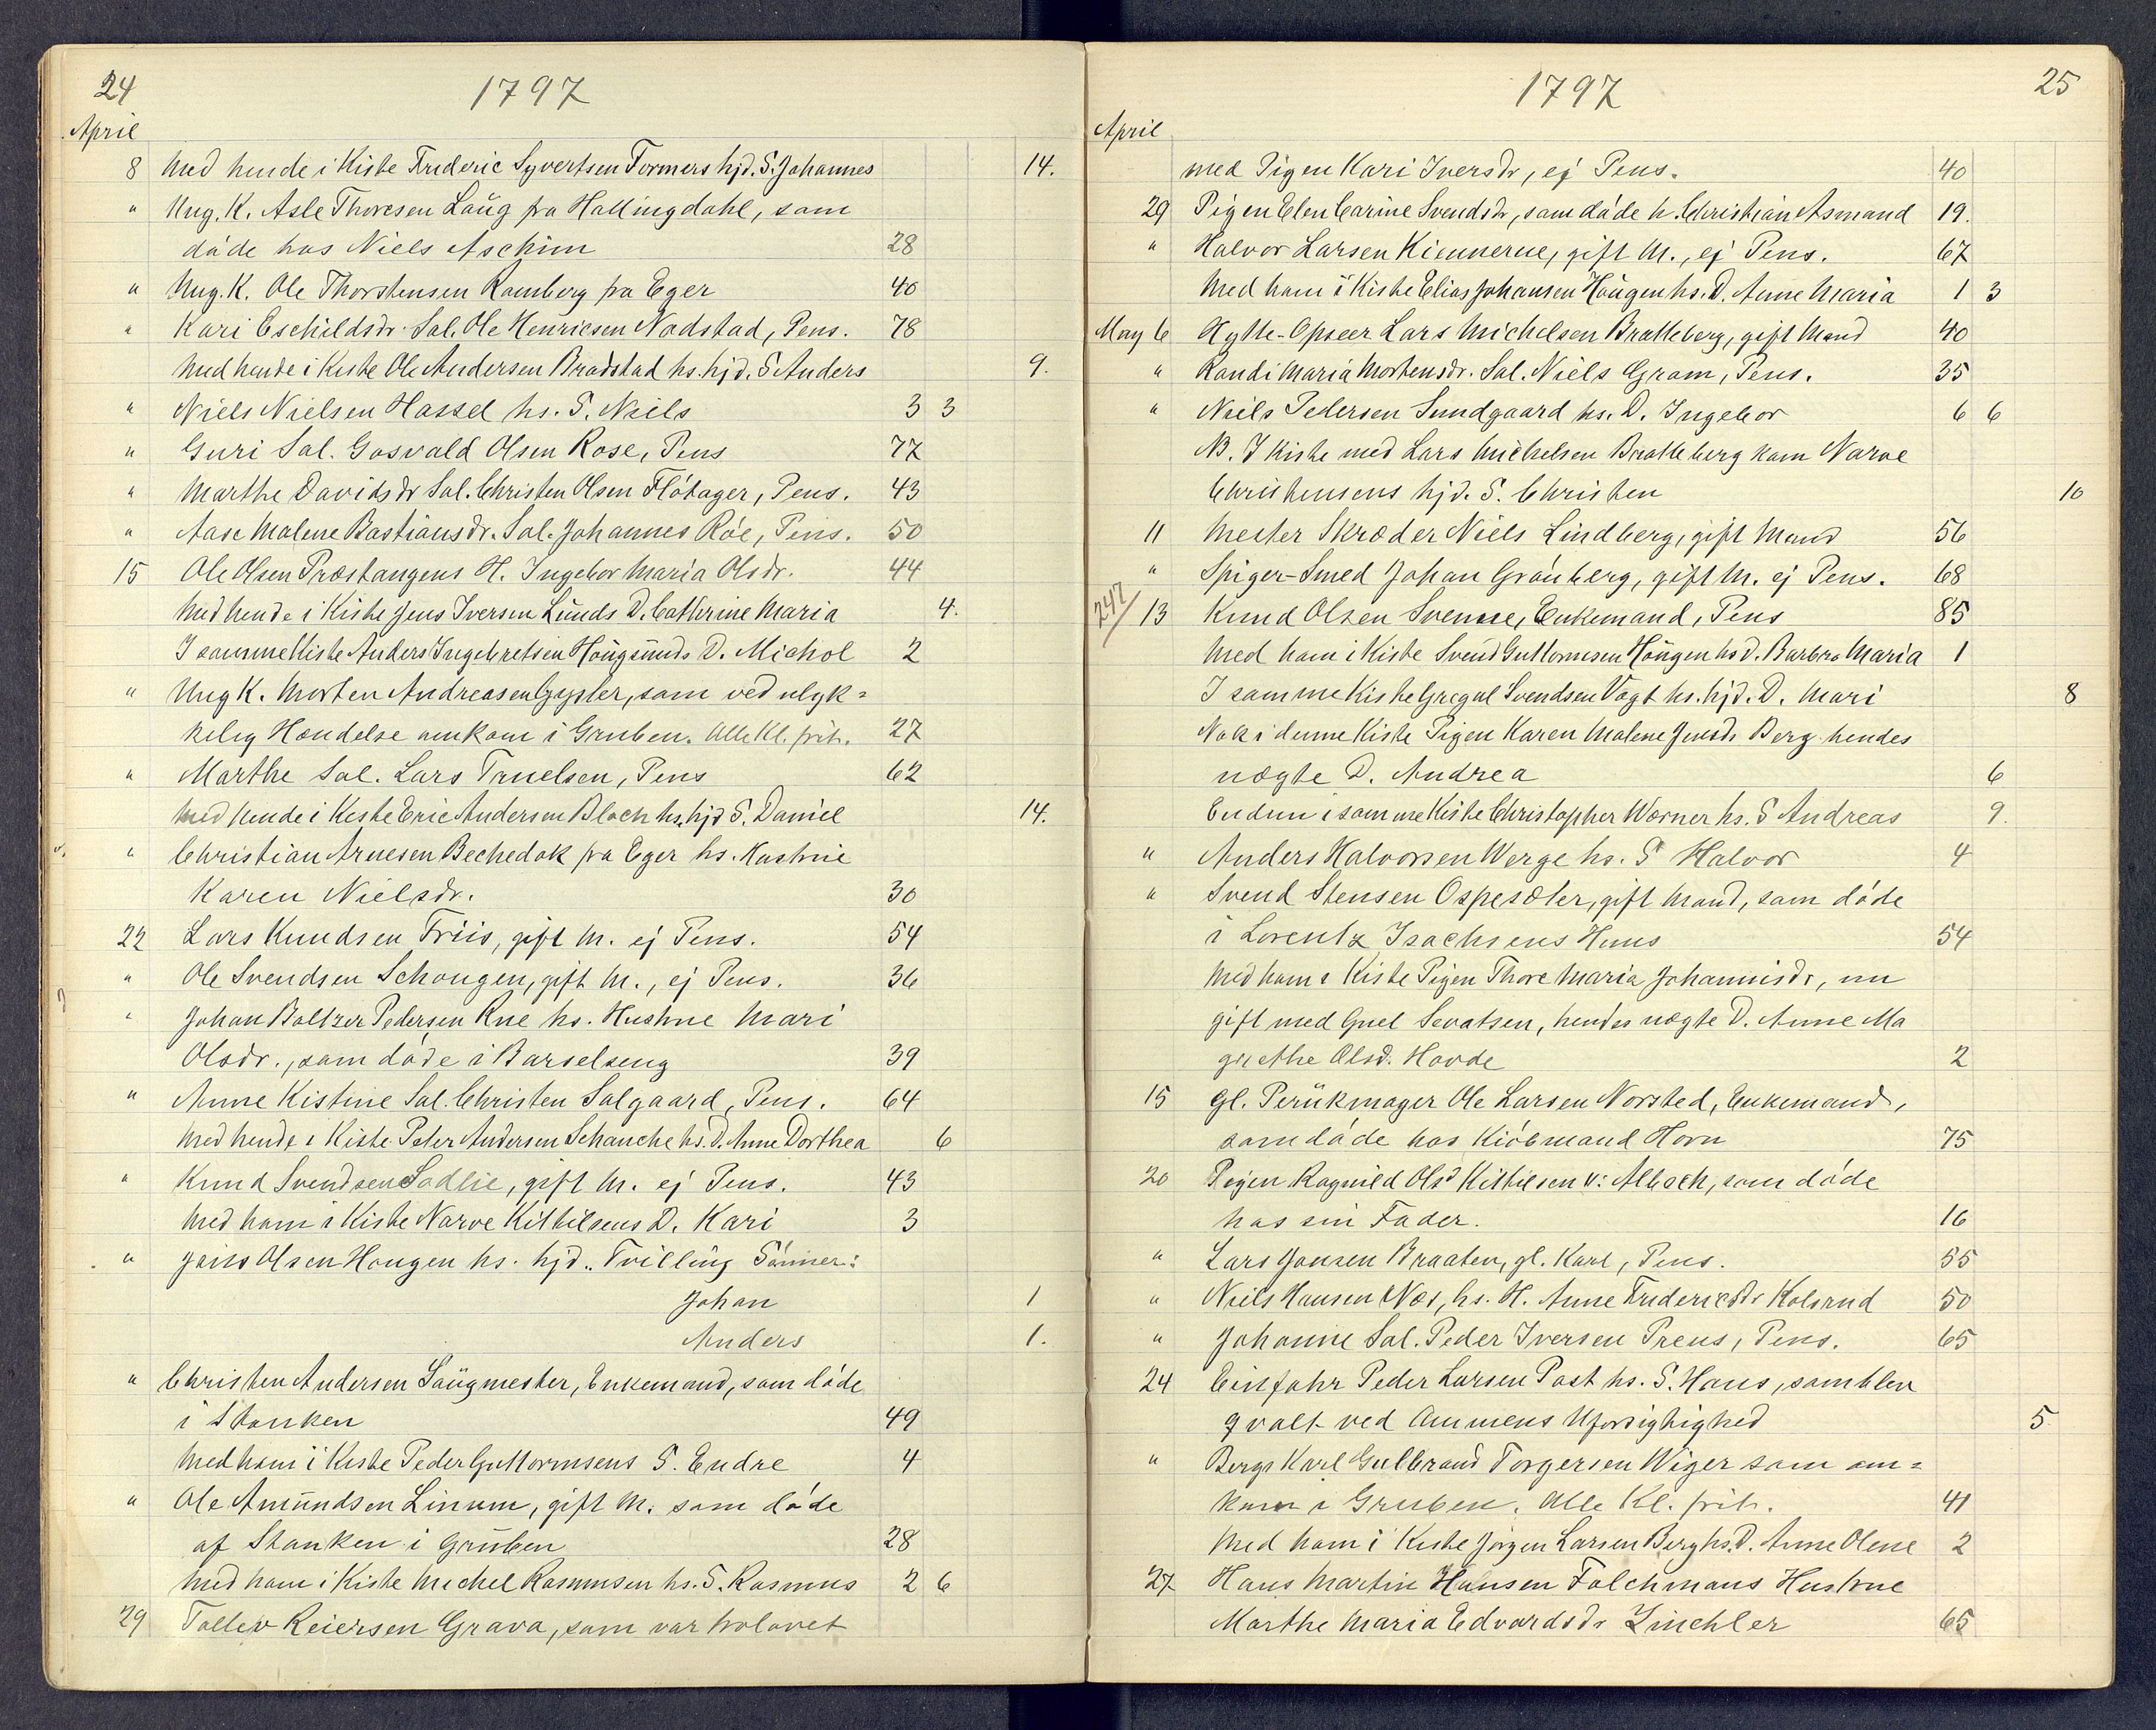 24
1797
April
8 Med hende i Kiste Frideric Syvertsen Formers hjd. S. Johannes 14.
" Ung. K. Asle Thoresen Laug fra Hallingdahl, som
døde hos Niels Aschim 28
" Ung. K. Ole Thorstensen Ramberg fra Eger 40
" Kari Eschildsdr. Sal. Ole Henricsen Nadstad, Pens. 78
Med hende i Kiste Ole Andersen Bradstad hs. hjd. S Anders 9.
" Niels Nielsen Hassel hs. S. Niels 3 3
" Guri Sal. Gosvald Olsen Rose, Pens 77
" Marthe Davidsdr Sal. Christen Olsen Flötager, Pens. 43
" Aase Malene Bastiansdr. Sal. Johannes Röe, Pens. 50
15 Ole Olsen Præstangens H. Ingebor Maria Olsdr. 44
Med hende i Kiste Jens Iversen Lunds D. Cathrine Maria 4.
I samme Kiste Anders Ingebretsen Hougsunds D. Michol 2
" Ung K. Morten Andreasen Gysler, som ved ulyk=
kelig Hændelse omkom i Gruben. Alle Kl. frit. 27
" Marthe Sal. Lars Truelsen, Pens 62
Med hende i Kiste Eric Andersen Bloch hs. hjd S. Daniel 14.
" Christian Arnesen Bechedok fra Eger hs. Hustrue
Karen Nielsdr. 30
22 Lars Knudsen Friis, gift M. ej Pens. 54
" Ole Svendsen Schougen, gift M., ej Pens. 36
" Johan Baltzer Pedersen Rue hs. Hustrue Mari
Olsdr., som døde i Barselseng 39
" Anne Kistine Sal. Christen Salgaard, Pens. 64
Med hende i Kiste Peter Andersen Schanche hs. D. Anne Dorthea 6
" Knud Svendsen Sadlie, gift M. ej Pens. 43
Med ham i Kiste Narve Kittilsens D. Kari 3
" Jens Olsen Hougen hs. hjd. Tvilling Sønner:
Johan 1
Anders 1.
" Christen Andersen Saugmester, Enkemand, som døde
i Stanken 49
Med ham i Kiste Peder Guttormsens S. Endre 4
" Ole Amundsen Linum, gift M. som døde
af Stanken i Gruben 28
Med ham i Kiste Michel Rasmusen hs. S. Rasmus 2 6
29 Tollev Reiersen Grava, som var trolovet
1797
25
April
med Pigen Kari Iversdr, ej Pens. 40
29 Pigen Elen Carine Svendsdr, som døde h. Christian Asmand 19.
" Halvor Larsen Kiennerue, gift M., ej Pens. 67
Med ham i Kiste Elias Johansen Hougen hs. D. Anne Maria 1 3
May 6 Hytte-Opseer Lars Michelsen Bratteberg, gift Mand 40
" Randi Maria Mortensdr. Sal. Niels Gram, Pens. 35
" Niels Pedersen Sundgaard hs. D. Ingebor 6 6
NB. I Kiste med Lars Michelsen Bratteberg kom Narve
Christensens hjd. S. Christen 10
11 Mester Skræder Niels Lindberg, gift Mand 56
" Spiger-Smed Johan Grönberg, gift M. ej Pens. 68
247/ 13 Knud Olsen Svenne, Enkemand, Pens 85
Med ham i Kiste Svend Guttormsen Hougen hs D. Barbra Maria 1
I samme Kiste Gregal Svendsen Vogt hs. hjd. D. Mari 8
Nok i denne Kiste Pigen Karen Malene Jensdr Berg hendes
uægte D. Andrea 6
Endnu i samme Kiste Christopher Wærner hs. S Andreas 9.
" Anders Halvorsen Werge hs. S Halvor 4
" Svend Stensen Ospesæter, gift Mand, som døde
i Lorentz Isachsens Huus 54
Med ham i Kiste Pigen Thore Maria Johannisdr, nu
gift med Gnel Sevatsen, hendes uægte D. Anne Ma
grethe Olsd. Hovde 2
15 Gl. Perükmager Ole Larsen Norsted, Enkemand,
som døde hos Kiöbmand Horn 75
20 Pigen Ragnild Olsd Kittilsen v: Alboch, som døde
hos sin Fader. 16
" Lars Jonsen Braaten, gl. Karl, Pens. 55
" Niels Hansen Næs, hs. H. Anne Fridericsdr Kolsrud 50
" Johanne Sal. Peder Iversen Preus, Pens. 65
24 Einfahr Peder Larsen Post hs. S. Hans, som blev
qvalt ved Ammens Uforsigtighed 5
" Bergs Karl Gulbrand Torgersen Wiger som om=
kom i Gruben. Alle Kl. frit. 41
Med ham i Kiste Jörgen Larsen Berg hs. D. Anne Olene 2
27 Hans Martin Hansen Falchmans Hustrue
Marthe Maria Edvardsdr Zinchler 65